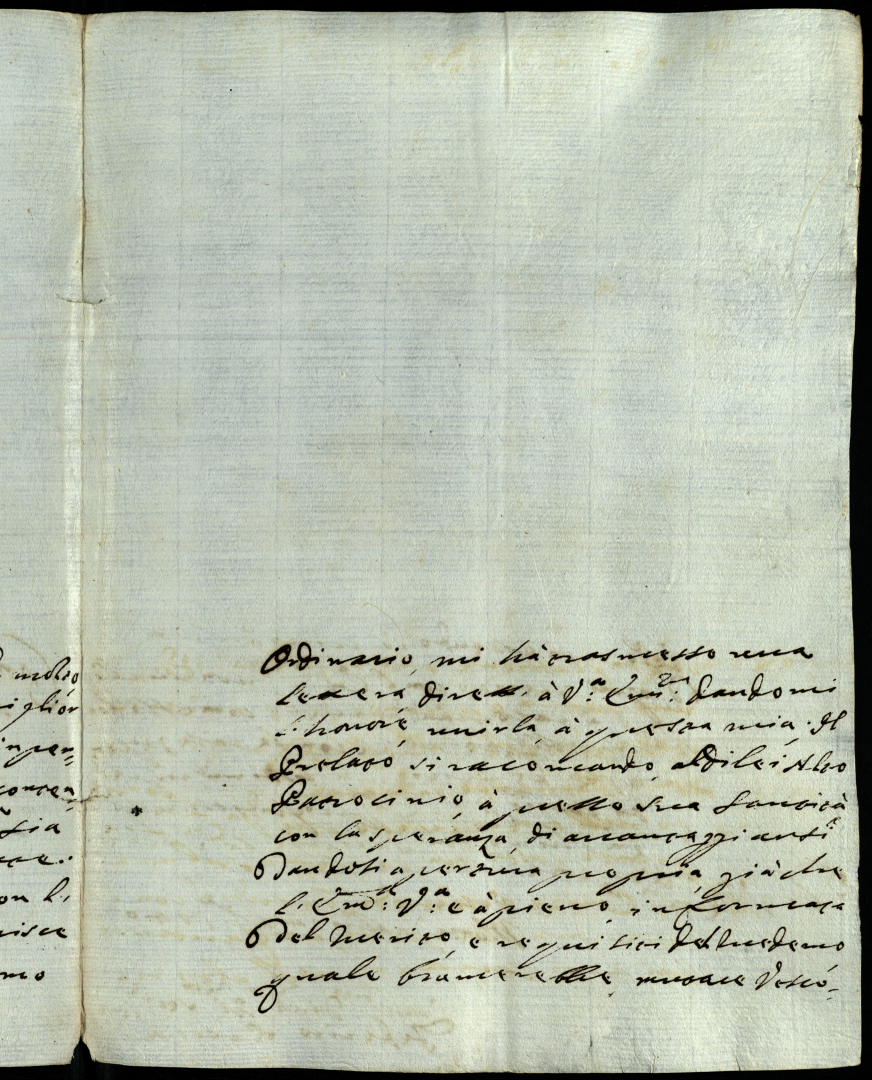 molto
iglior
inper=
concen=
sia
on l'
nisce
mo
Ordinario, mi hà trasmesso una
lettera dirett. à V.ª Em.za: dandomi
l'honore, unirla, à questa mia; Il
Prelato si racomando, al di lei Alto
Patrocinio, à presso Sua Santità
con la speranza, di auantaggiarsi
Dandosi apertura propria, già che
l'Em.ª: V.ª è à pieno, informata
Del merito, e requisiti del medemo
quale bramerebbe, mutare Vesco=